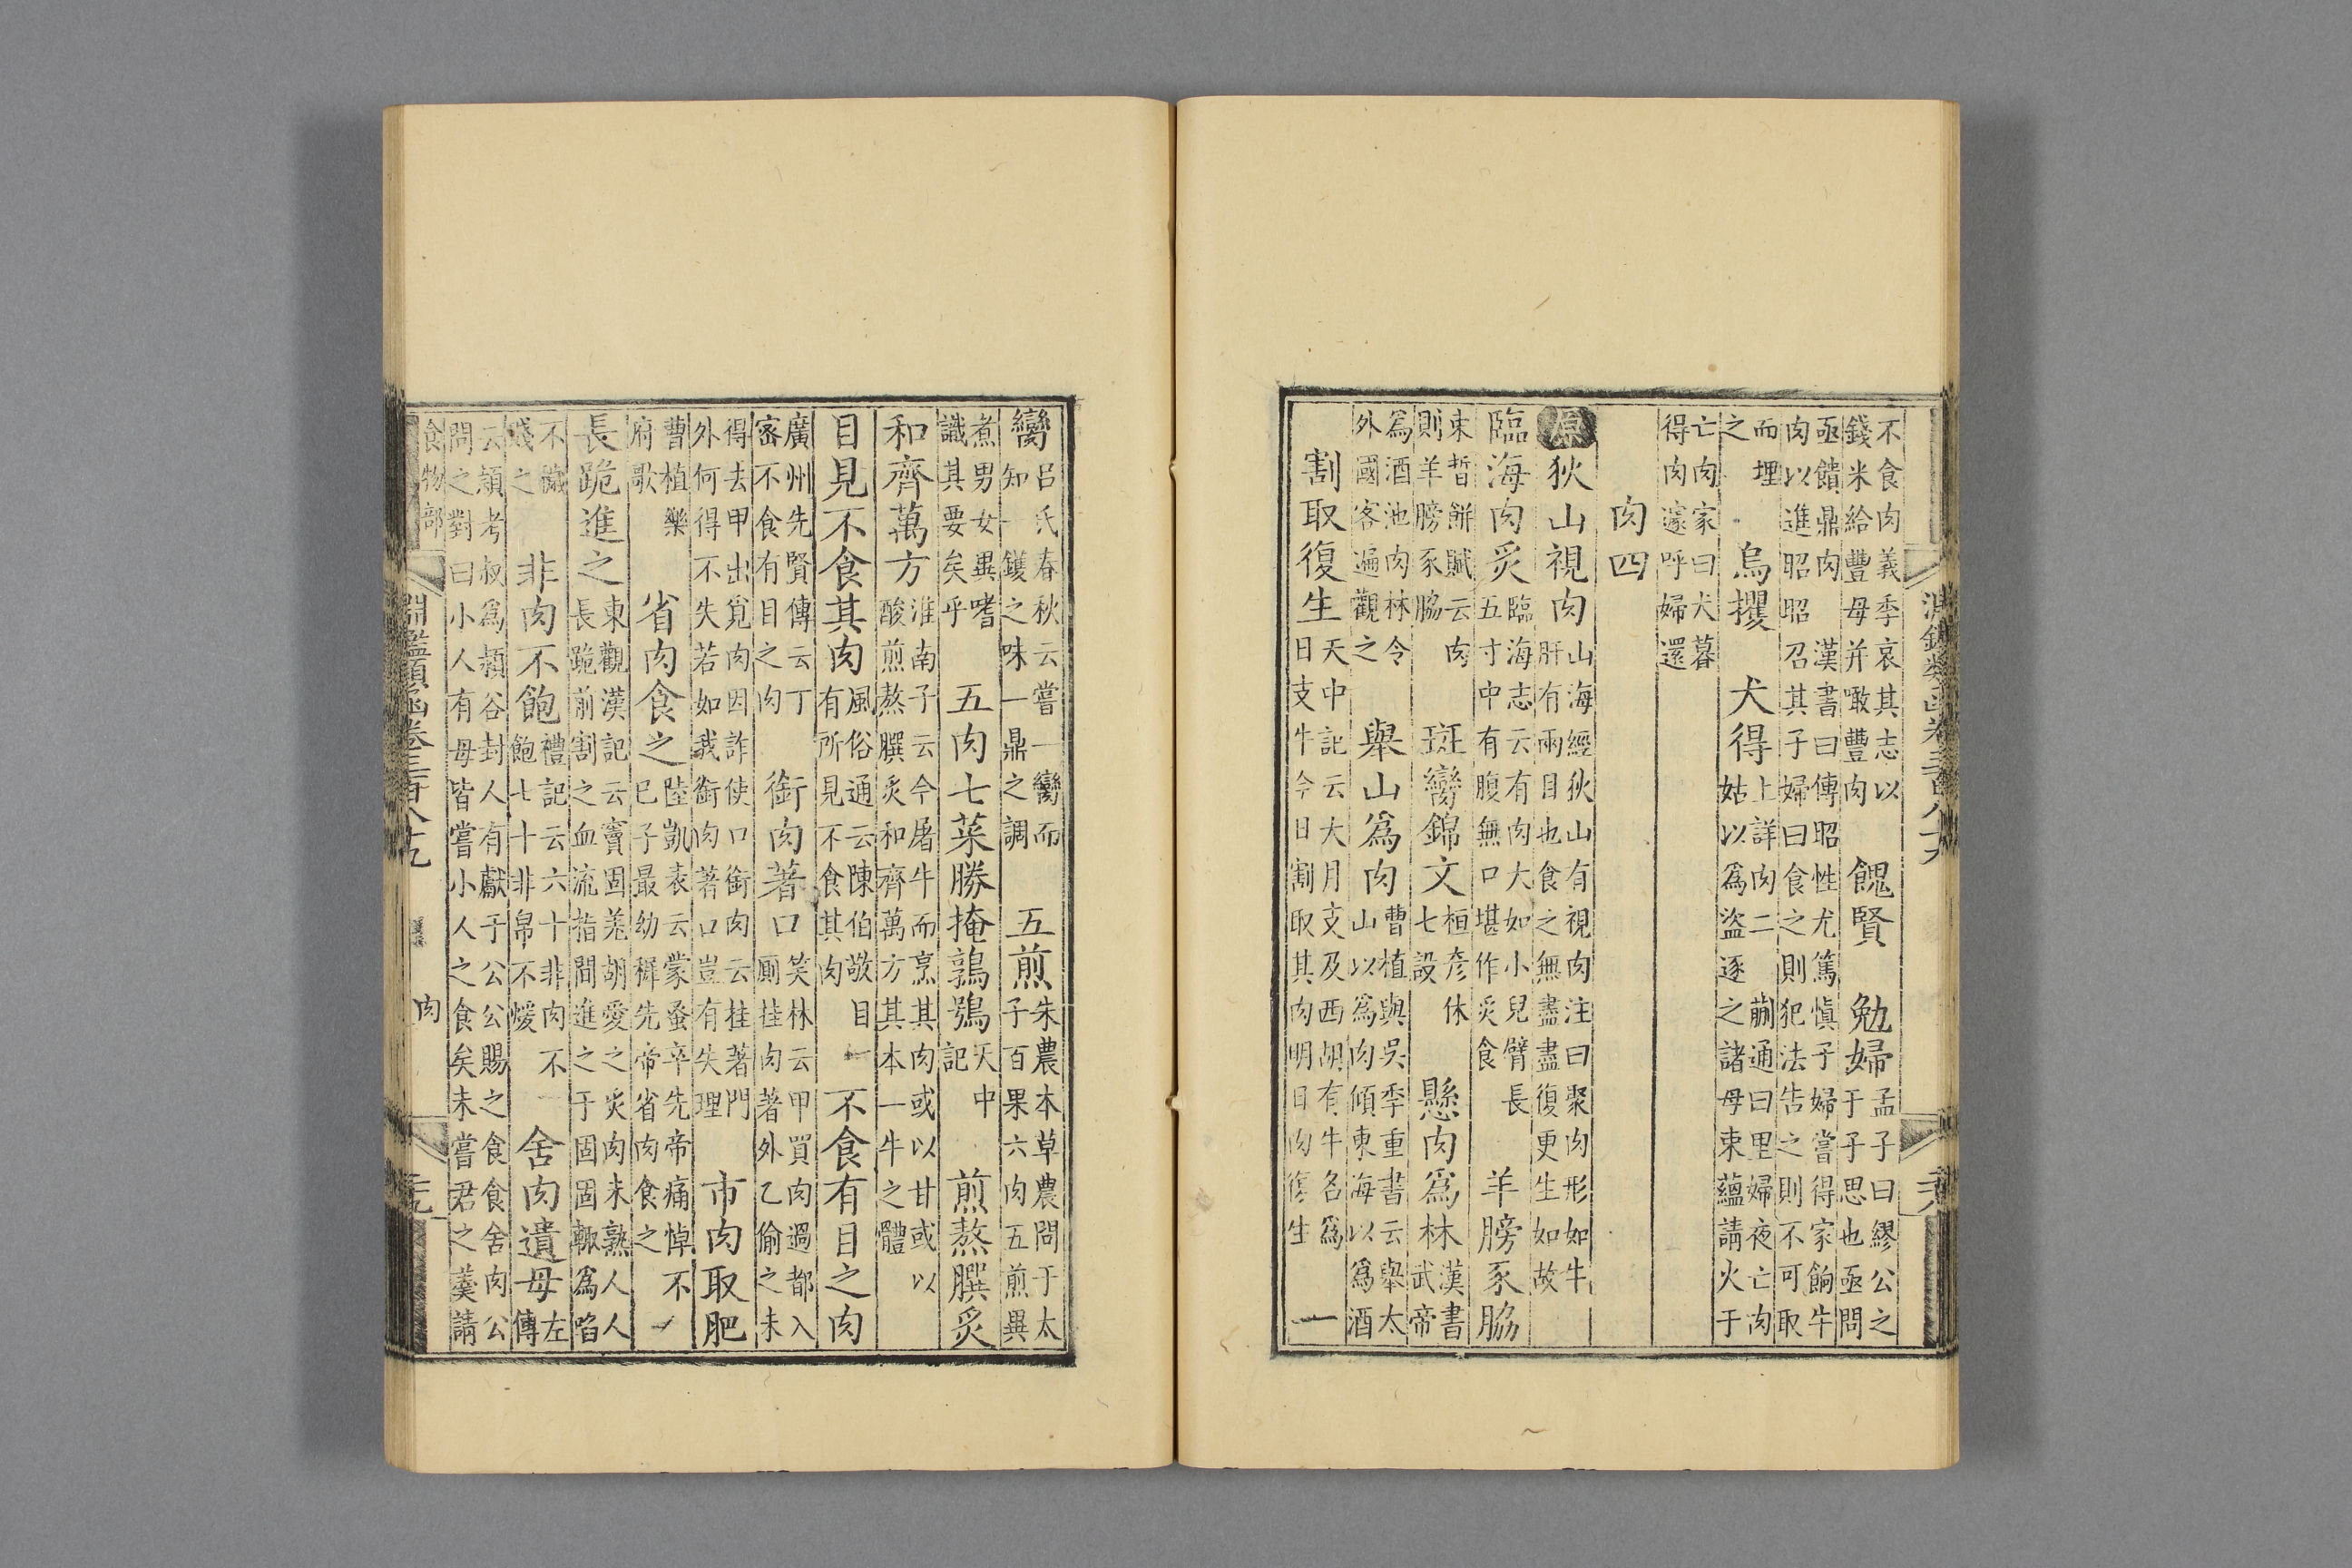 不食肉義季哀其志以錢米給豐母并噉豐肉 餽賢 勉婦 孟子曰繆公之于子思也亟問
亟饋鼎肉 漢書曰傅昭性尤篤慎子婦嘗得家餉牛肉以進昭昭召其子婦曰食之則犯法告之則不可取
而埋之 烏攫 犬得 上詳肉二 蒯通曰里婦夜亡肉姑以爲盜逐之諸母束蘊請火于
亡肉家曰犬暮得肉遽呼婦還
肉四
原 狄山視肉 山海經狄山有視肉注曰聚肉形如牛肝有兩目也食之無盡盡復更生如故
臨海肉炙 臨海志云有肉大如小兒臂長五寸中有腹無口堪作炙食 羊膀豕脇
束晳餅賦云肉則羊膀豕脇 斑臠錦文 桓彦休七設 懸肉爲林 漢書武帝
爲酒池肉林令外國客遍觀之 舉山爲肉 曹植與吳季重書云舉太山以爲肉傾東海以爲酒
割取復生 天中記云大月支及西胡有牛名爲日支牛今日割取其肉明日肉復生 一
臠 呂氏春秋云嘗一臠而知一鑊之味一鼎之調 五煎 朱農本草農問于太子百果六肉五煎異
煮男女異嗜識其要矣乎 五肉七菜勝掩鶉鴞 天中記 煎熬膶炙
和齊萬方 淮南子云今屠牛而烹其肉或以甘或以酸煎熬膶炙和齊萬方其本一牛之體
目見不食其肉 風俗通云陳伯敬目有所見不食其肉 不食有目之肉
廣州先賢傳云丁密不食有目之肉 銜肉著口 笑林云甲買肉過都入厠挂肉著外乙偷之未
得去甲出覓肉因詐使口銜肉云挂著門外何得不失若如我銜肉著口豈有失理 市肉取肥
曹植樂府歌 省肉食之 陸凱表云蒙蚤卒先帝痛悼不已子最幼穉先帝省肉食之
長跪進之 東觀漢記云竇固羌胡愛之炙肉未熟人人長跪前割之血流指間進之于固固輒爲啗
不穢賤之 非肉不飽 禮記云六十非肉不飽七十非帛不煖 舍肉遺母 左傳
云頴考叔爲頴谷封人有獻于公公賜之食食舍肉公問之對曰小人有母皆嘗小人之食矣未嘗君之羹請
食物部 淵鑑類函卷三百八十九 肉